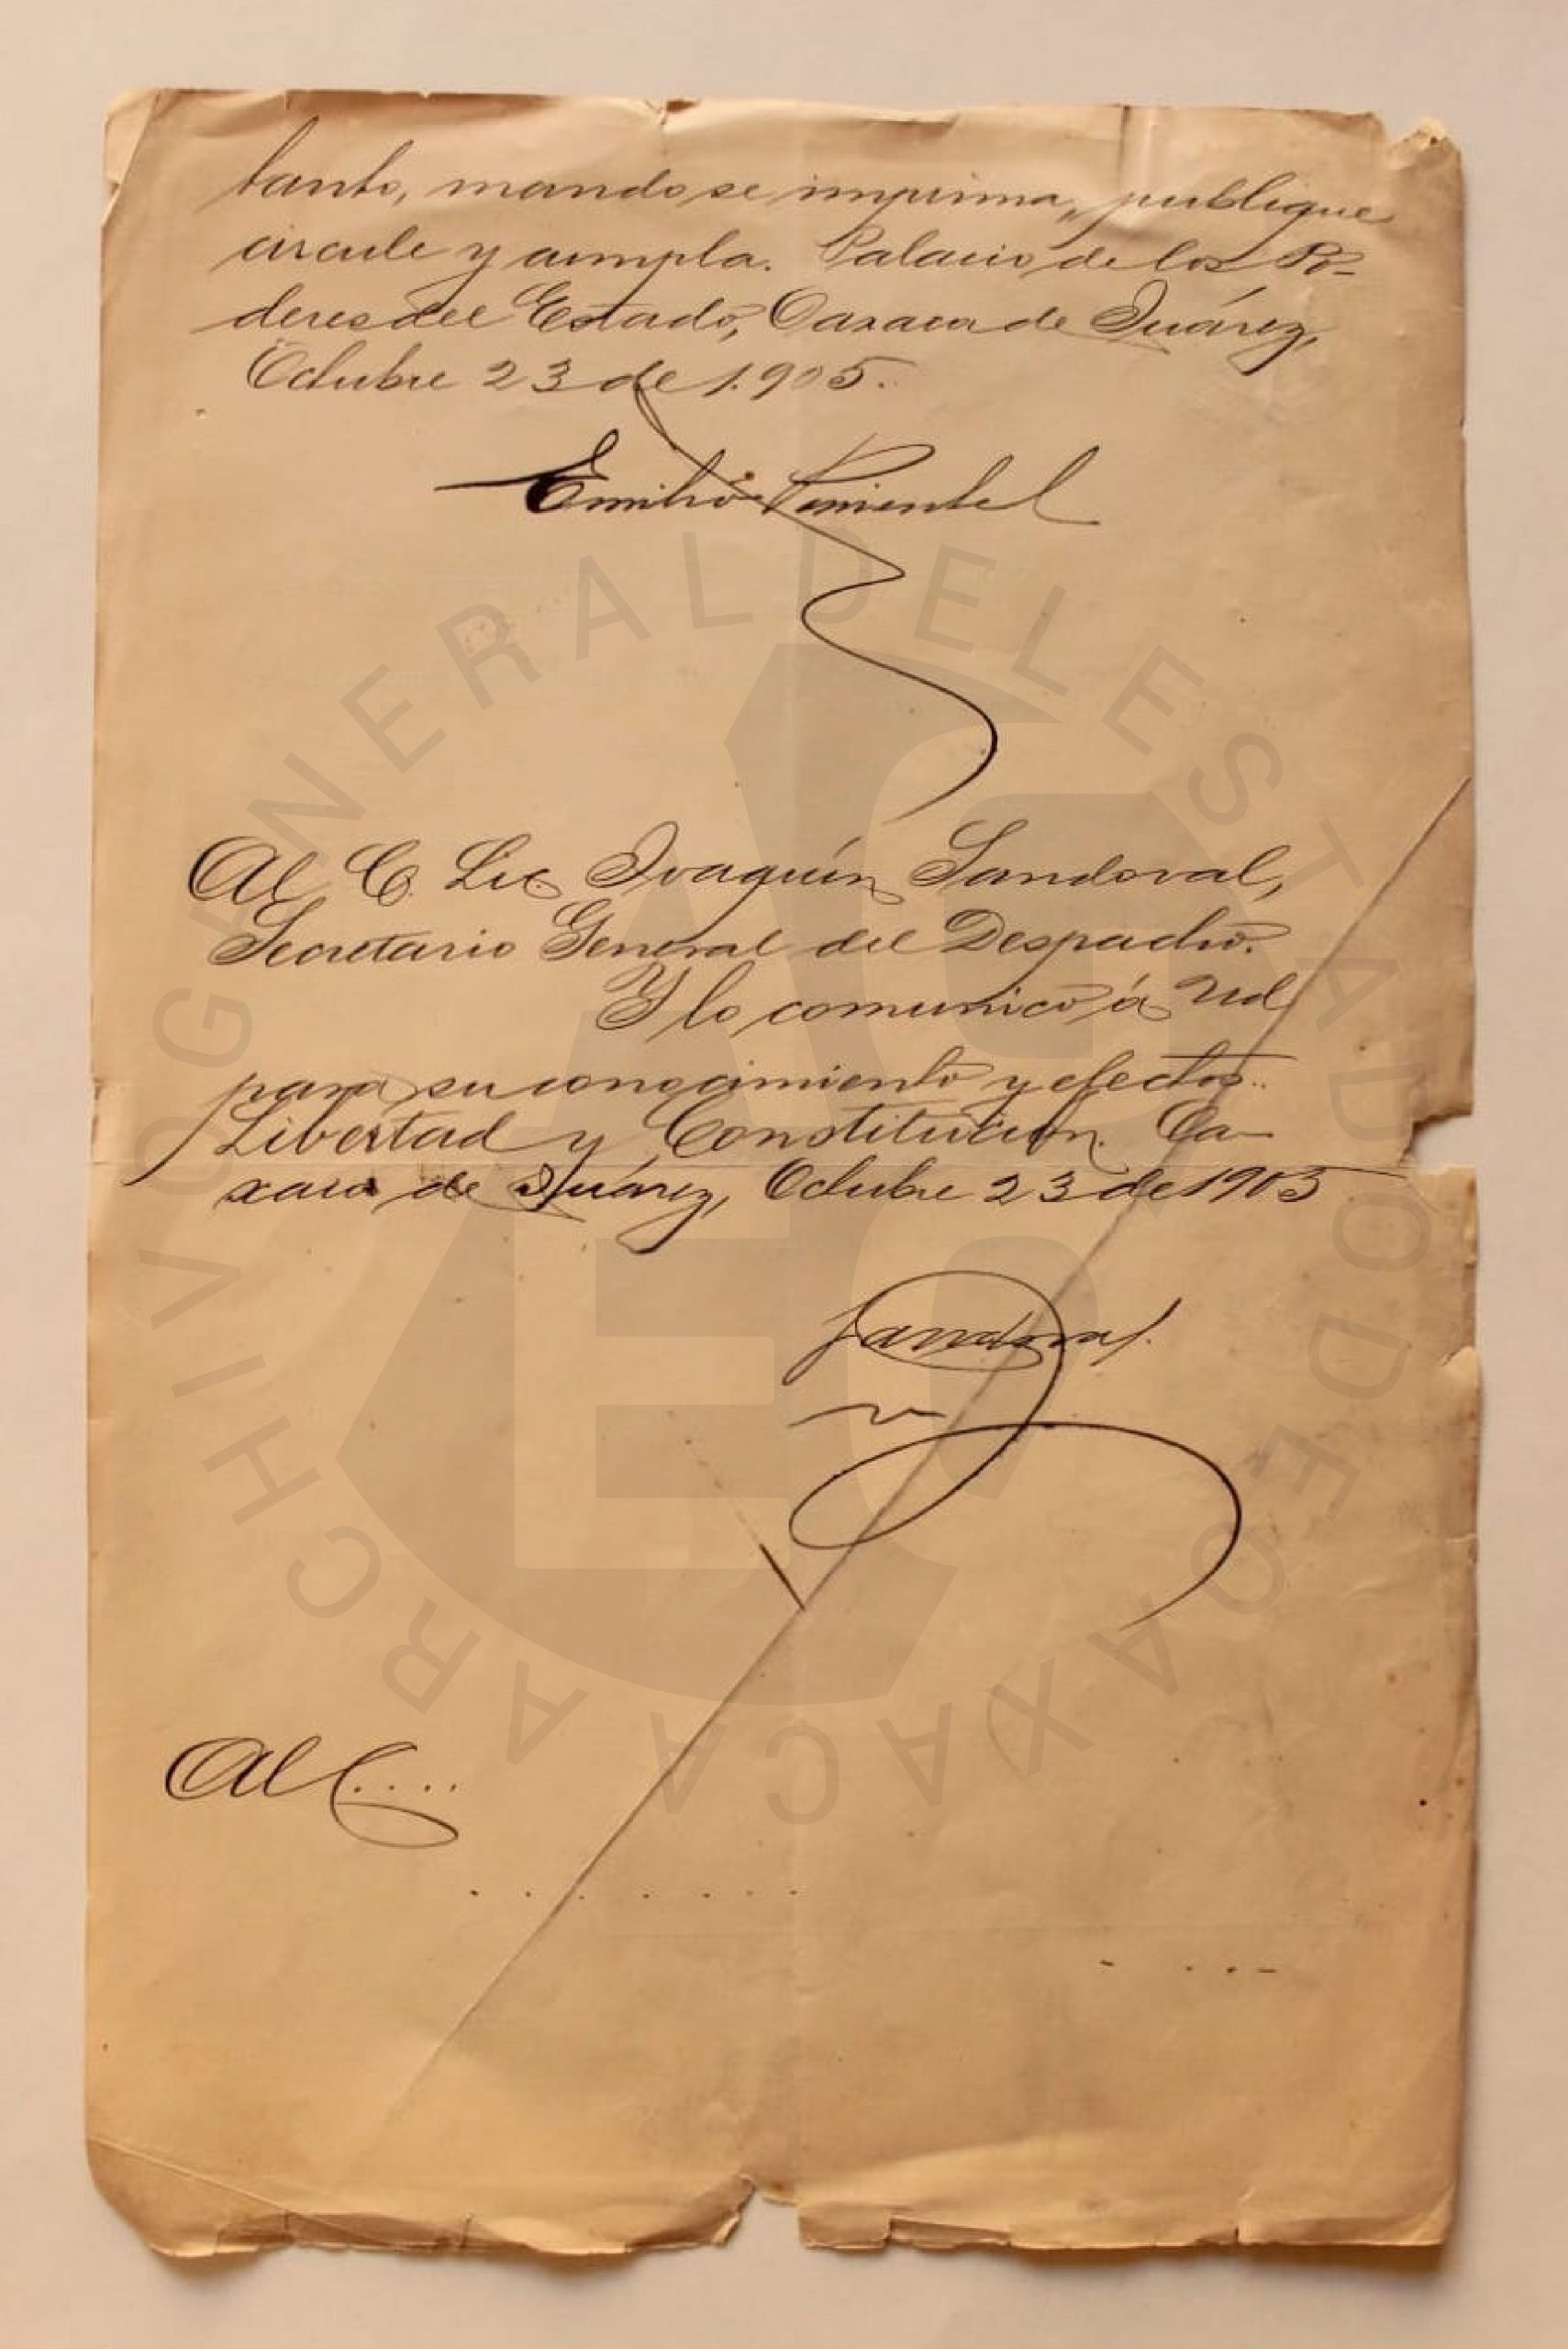 tanto, mando se imprima, publique
circule y cumpla. Palacio de los Po-
deres del Estado, Oaxaca de Juárez,
Octubre 23 de 1.905.
Emilio Pimentel
Al C. Lic. Joaquín Sandoval,
Secretario General del Despacho.
Y lo comunico á Ud
para su conocimiento y efectos..
Libertad y Constitución. Oa-
xaca de Juárez, Octubre 23 de 1905
Sandoval.
Al C. ....
ARCHIVO GENERAL DEL ESTADO DE OAXACA
AGEO